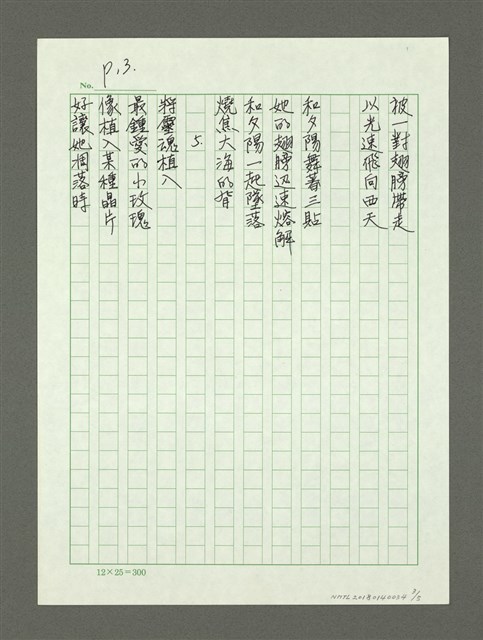 No. P.3.
被一對翅膀帶走
以光速飛向西天
和夕陽舞著三貼
她的翅膀迅速熔解
和夕陽一起墜落
燒焦大海的背
5.
將靈魂植入
最鍾愛的小玫瑰
像植入某種晶片
好讓她凋落時
12×25=300
NMTL20180140034 3/5